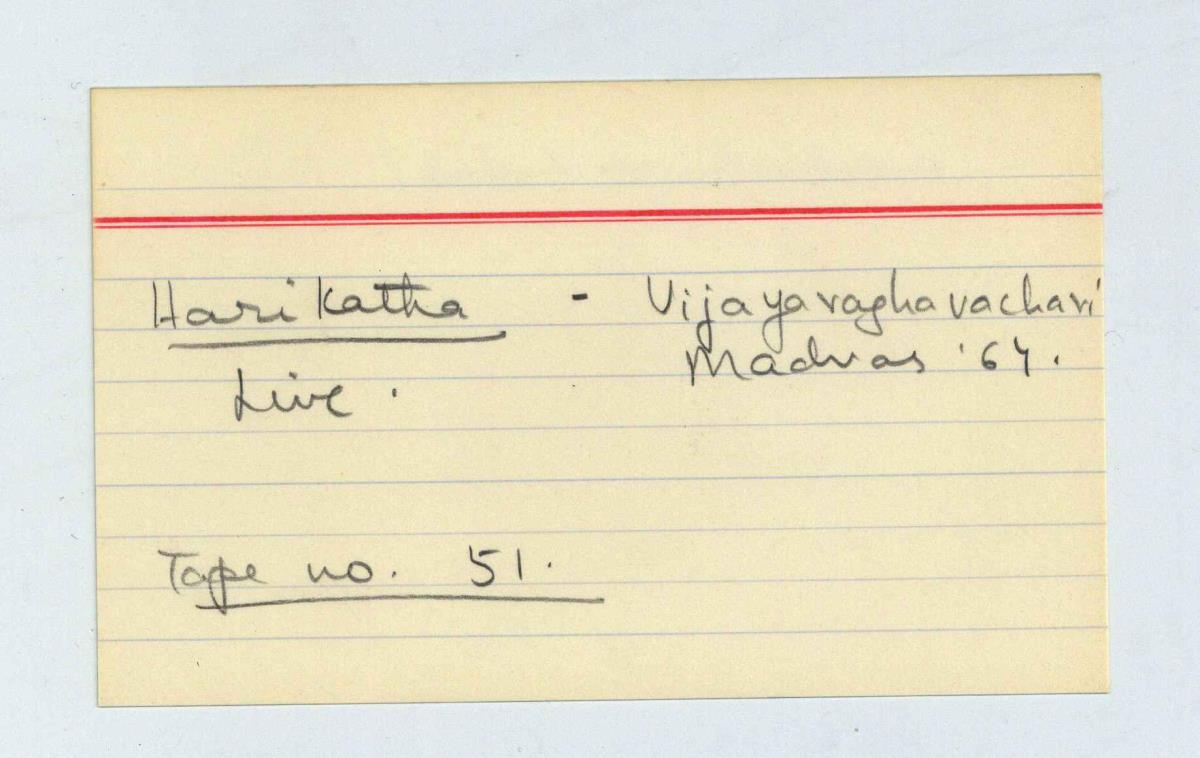 Harikatha - Vijayaraghavachari
Madras '64.
Live.
Tape no. 51.